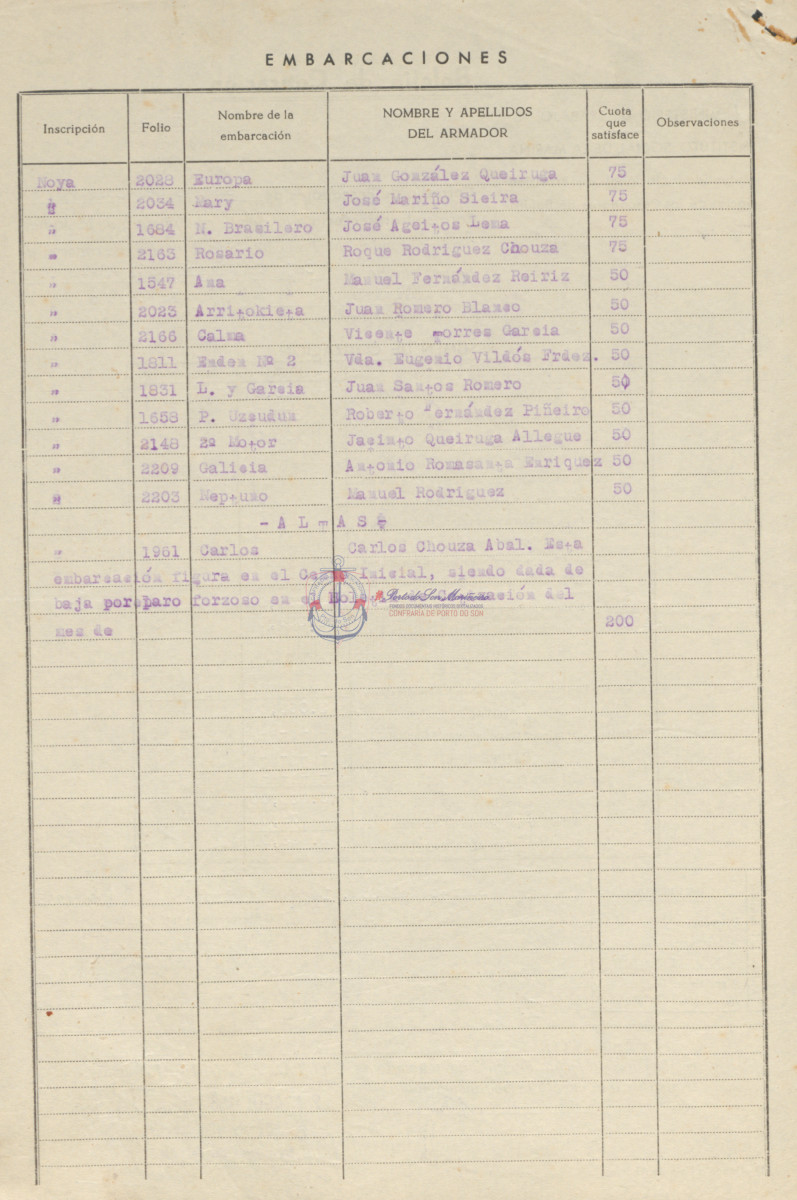 EMBARCACIONES
Inscripción Folio Nombre de la embarcación NOMBRE Y APELLIDOS DEL ARMADOR Cuota que satisface Observaciones
Noya 2028 Europa Juan González Queiruga 75
" 2034 Mary José Mariño Sieira 75
" 1684 N. Brasilero José Ageitos Lema 75
" 2163 Rosario Roque Rodriguez Chouza 75
" 1547 Ana Manuel Fernández Reiriz 50
" 2023 Arritokieta Juan Romero Blanco 50
" 2166 Calma Vicente Torres Garcia 50
" 1811 Emden Nº 2 Vda. Eugenio Vildós Frdez. 50
" 1831 L. y Garcia Juan Santos Romero 50
" 1658 P. Uzcudun Roberto Fernández Piñeiro 50
" 2148 2º Motor Jacinto Queiruga Allegue 50
" 2209 Galicia Antonio Romasanta Enriquez 50
" 2203 Neptuno Manuel Rodriguez 50
-ALTAS-
" 1961 Carlos Carlos Chouza Abal. Esta
embarcación figura en el Censo Inicial, siendo dada de
baja por paro forzoso en el del
mes de 200
Porto do Son Marineiro
CONFRARIA DE PORTO DO SON